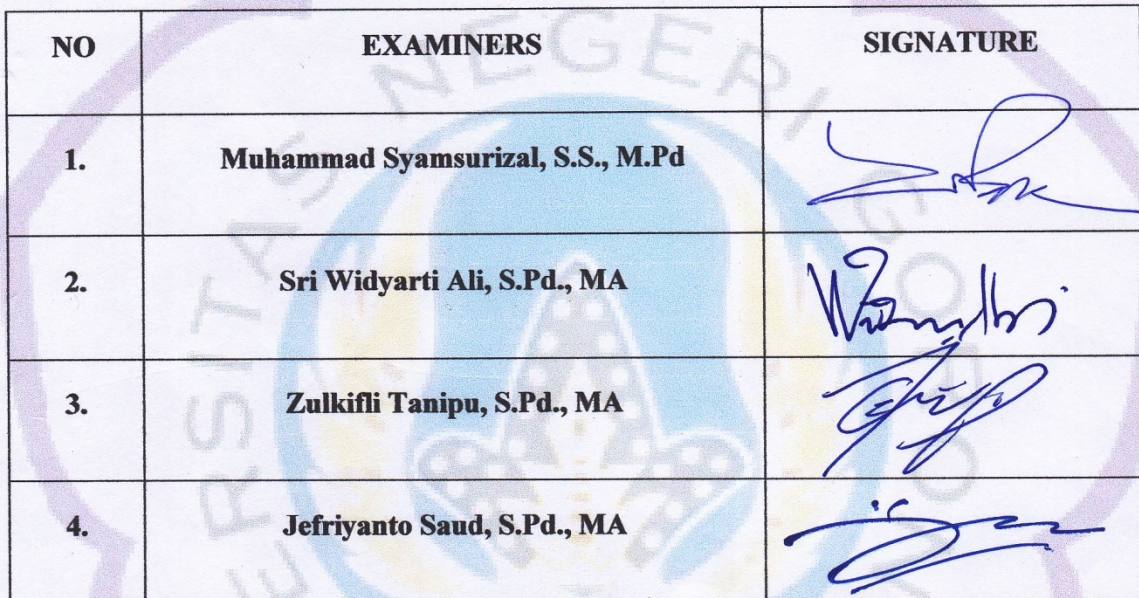 NO EXAMINERS SIGNATURE
1. Muhammad Syamsurizal, S.S., M.Pd
2. Sri Widyarti Ali, S.Pd., MA
3. Zulkifli Tanipu, S.Pd., MA
4. Jefriyanto Saud, S.Pd., MA